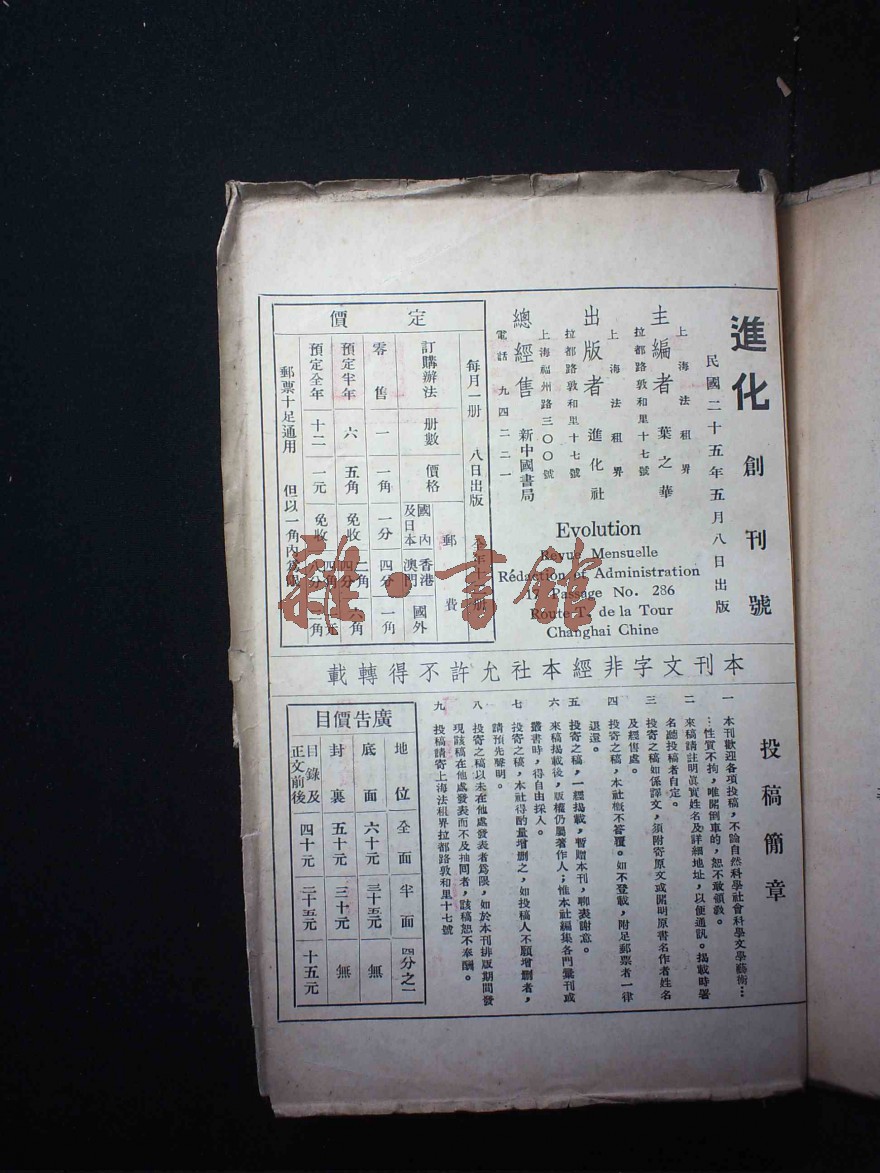 進化 創刊號
民國二十五年五月八日出版
上海法租界
主編者 葉之華
拉都路敦和里十七號
上海法租界
出版者 進化社
拉都路敦和里十七號
上海福州路三〇〇號
總經售 新中國書局
電話 九四二二一
Evolution
Revue Mensuelle
Rédaction et Administration
17 Passage No. 286
Route T. de la Tour
Changhai Chine
定價
每月一册 八日出版
訂購辦法 册數 價格 郵費
國內及日本 香港澳門 國外
零售 一 一角 一分 四分 一角
預定半年 六 五角 免收 二角四分 六角
預定全年 十二 一元 免收
郵票十足通用 但以一角內爲限
雜·書館
本刊文字非經本社允許不得轉載
投稿簡章
一 本刊歡迎各項投稿，不論自然科學社會科學文學藝術…
…性質不拘，唯開倒車的，恕不敢領敎。
二 來稿請註明眞實姓名及詳細地址，以便通訊。揭載時署
名聽投稿者自定。
三 投寄之稿如係譯文，須附寄原文或開明原書名作者姓名
及經售處。
四 投寄之稿，本社槪不答覆。如不登載，附足郵票者一律
退還。
五 投寄之稿，一經揭載，暫贈本刊，聊表謝意。
六 來稿揭載後，版權仍屬著作人；惟本社編集各門彙刊或
叢書時，得自由採入。
七 投寄之稿，本社得酌量增删之，如投稿人不願增删者，
請預先聲明。
八 投寄之稿以未在他處發表者爲限，如於本刊排版期間發
現該稿在他處發表而不及抽囘者，該稿恕不奉酬。
九 投稿請寄上海法租界拉都路敦和里十七號
廣告價目
地位 全面 半面 四分之一
底面 六十元 三十五元 無
封裏 五十元 三十元 無
目錄及正文前後 四十元 二十五元 十五元